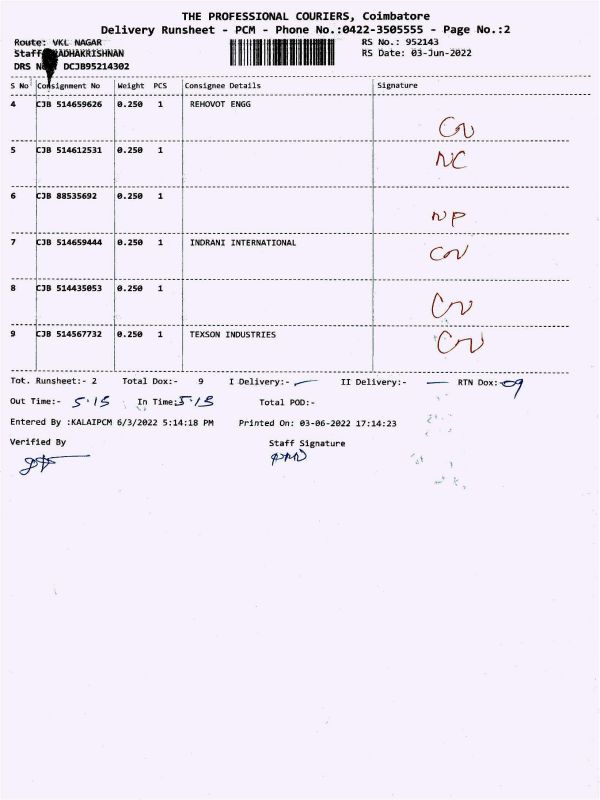 THE PROFESSIONAL COURIERS, Coimbatore
Delivery Runsheet - PCM - Phone No.:0422-3505555 - Page No.:2
Route: VKL NAGAR RS No.: 952143
Staff RADHAKRISHNAN RS Date: 03-Jun-2022
DRS No DCJB95214302
S No Consignment No Weight PCS Consignee Details Signature
4 CJB 514659626 0.250 1 REHOVOT ENGG
5 CJB 514612531 0.250 1 NC
6 CJB 88535692 0.250 1 NP
7 CJB 514659444 0.250 1 INDRANI INTERNATIONAL
8 CJB 514435053 0.250 1
9 CJB 514567732 0.250 1 TEXSON INDUSTRIES
Tot. Runsheet:- 2 Total Dox:- 9 I Delivery:- — II Delivery:- — RTN Dox:- 09
Out Time:- 5.15 In Time: 5.15 Total POD:-
Entered By :KALAIPCM 6/3/2022 5:14:18 PM Printed On: 03-06-2022 17:14:23
Verified By Staff Signature